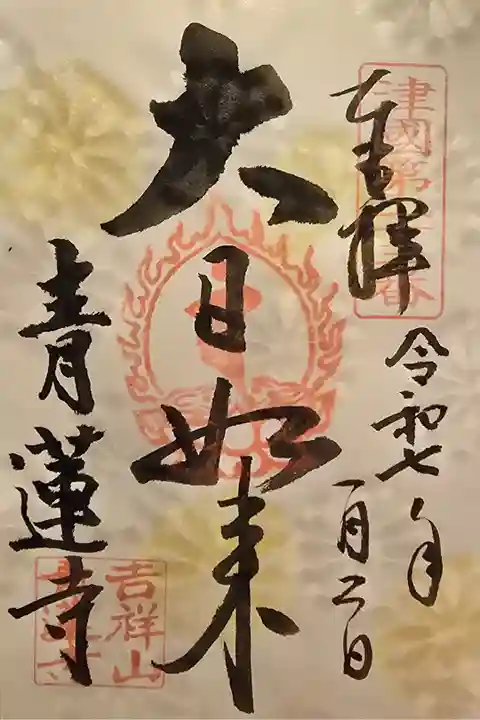 奉拝
津國第
番
令和七年
一月二日
大日如来
青蓮寺
吉祥山